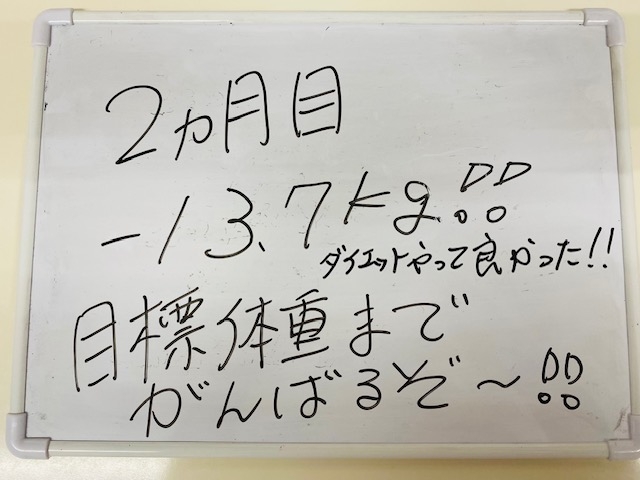 2ヵ月目
-13.7kg!!
ダイエットやって良かった!!
目標体重まで
がんばるぞ〜!!